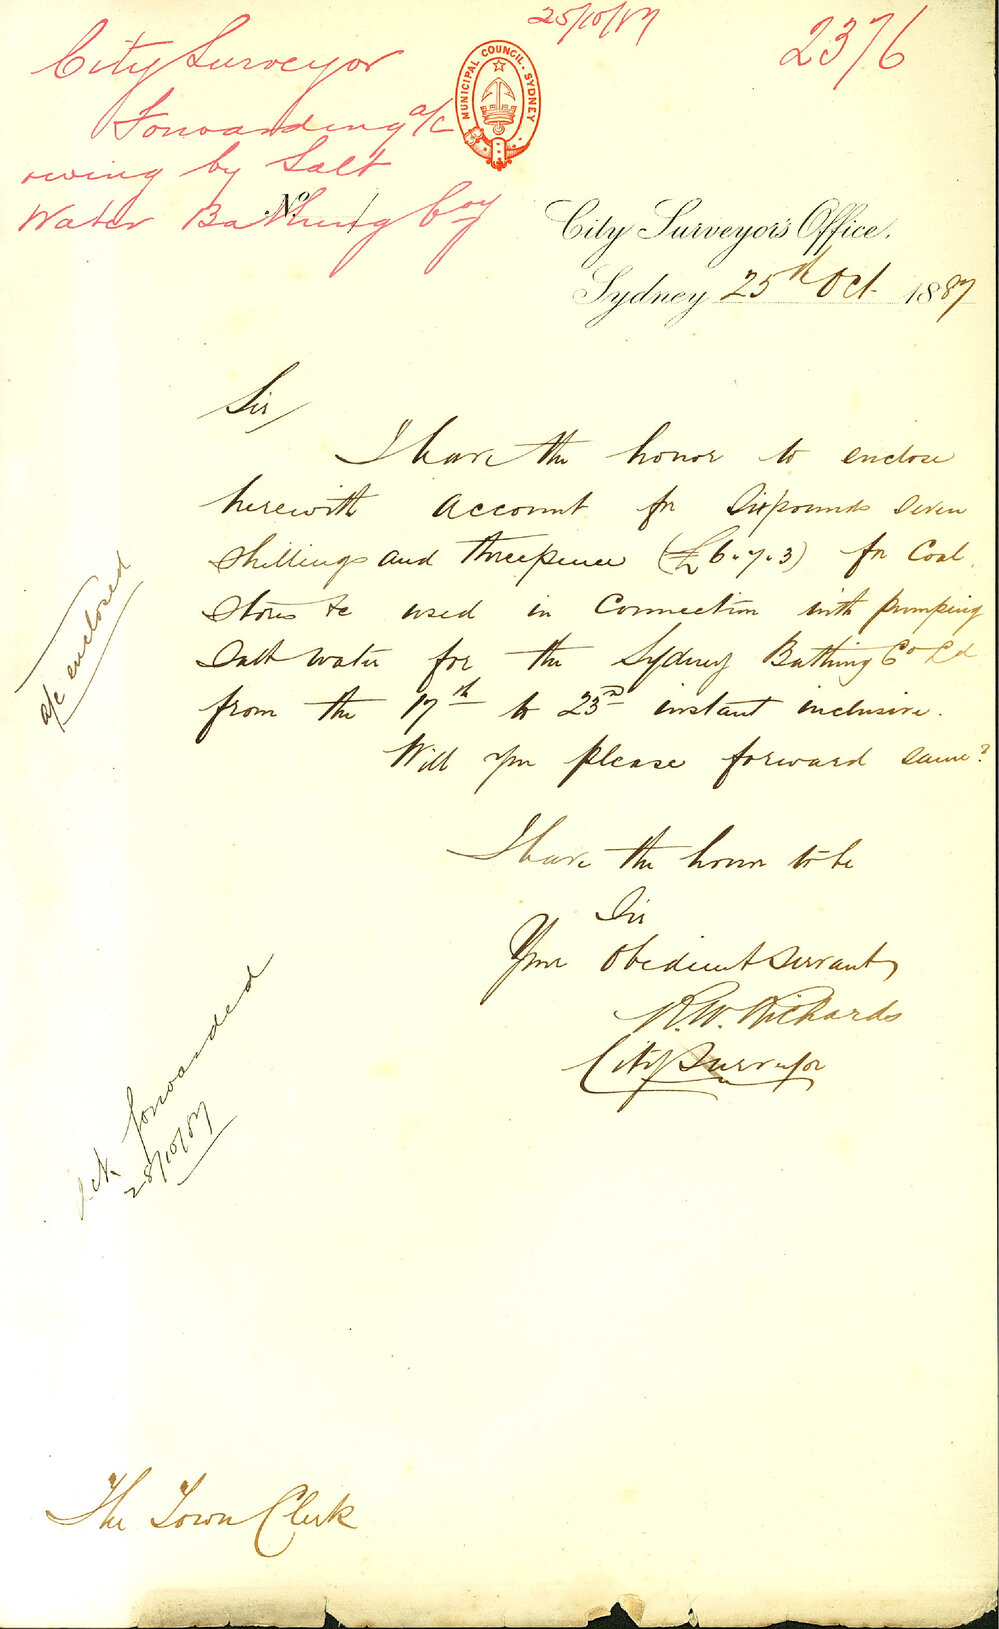 25/10/87
2376
City Surveyor
Forwarding a/c
owing by Salt
Water Bathing Coy
MUNICIPAL COUNCIL · SYDNEY
No.
City Surveyor's Office.
Sydney 25th Oct 1887
Sir,
I have the honor to enclose
herewith account for Six pounds seven
shillings and threepence (£6.7.3) for Coal
Stores &c used in Connection with pumping
Salt water for the Sydney Bathing Co Ld
from the 17th to 23rd instant inclusive.
Will you please forward same?
a/c enclosed
I have the honor to be
Sir
Your Obedient Servant
R.W. Richards
City Surveyor
forwarded
28/10/87
The Town Clerk